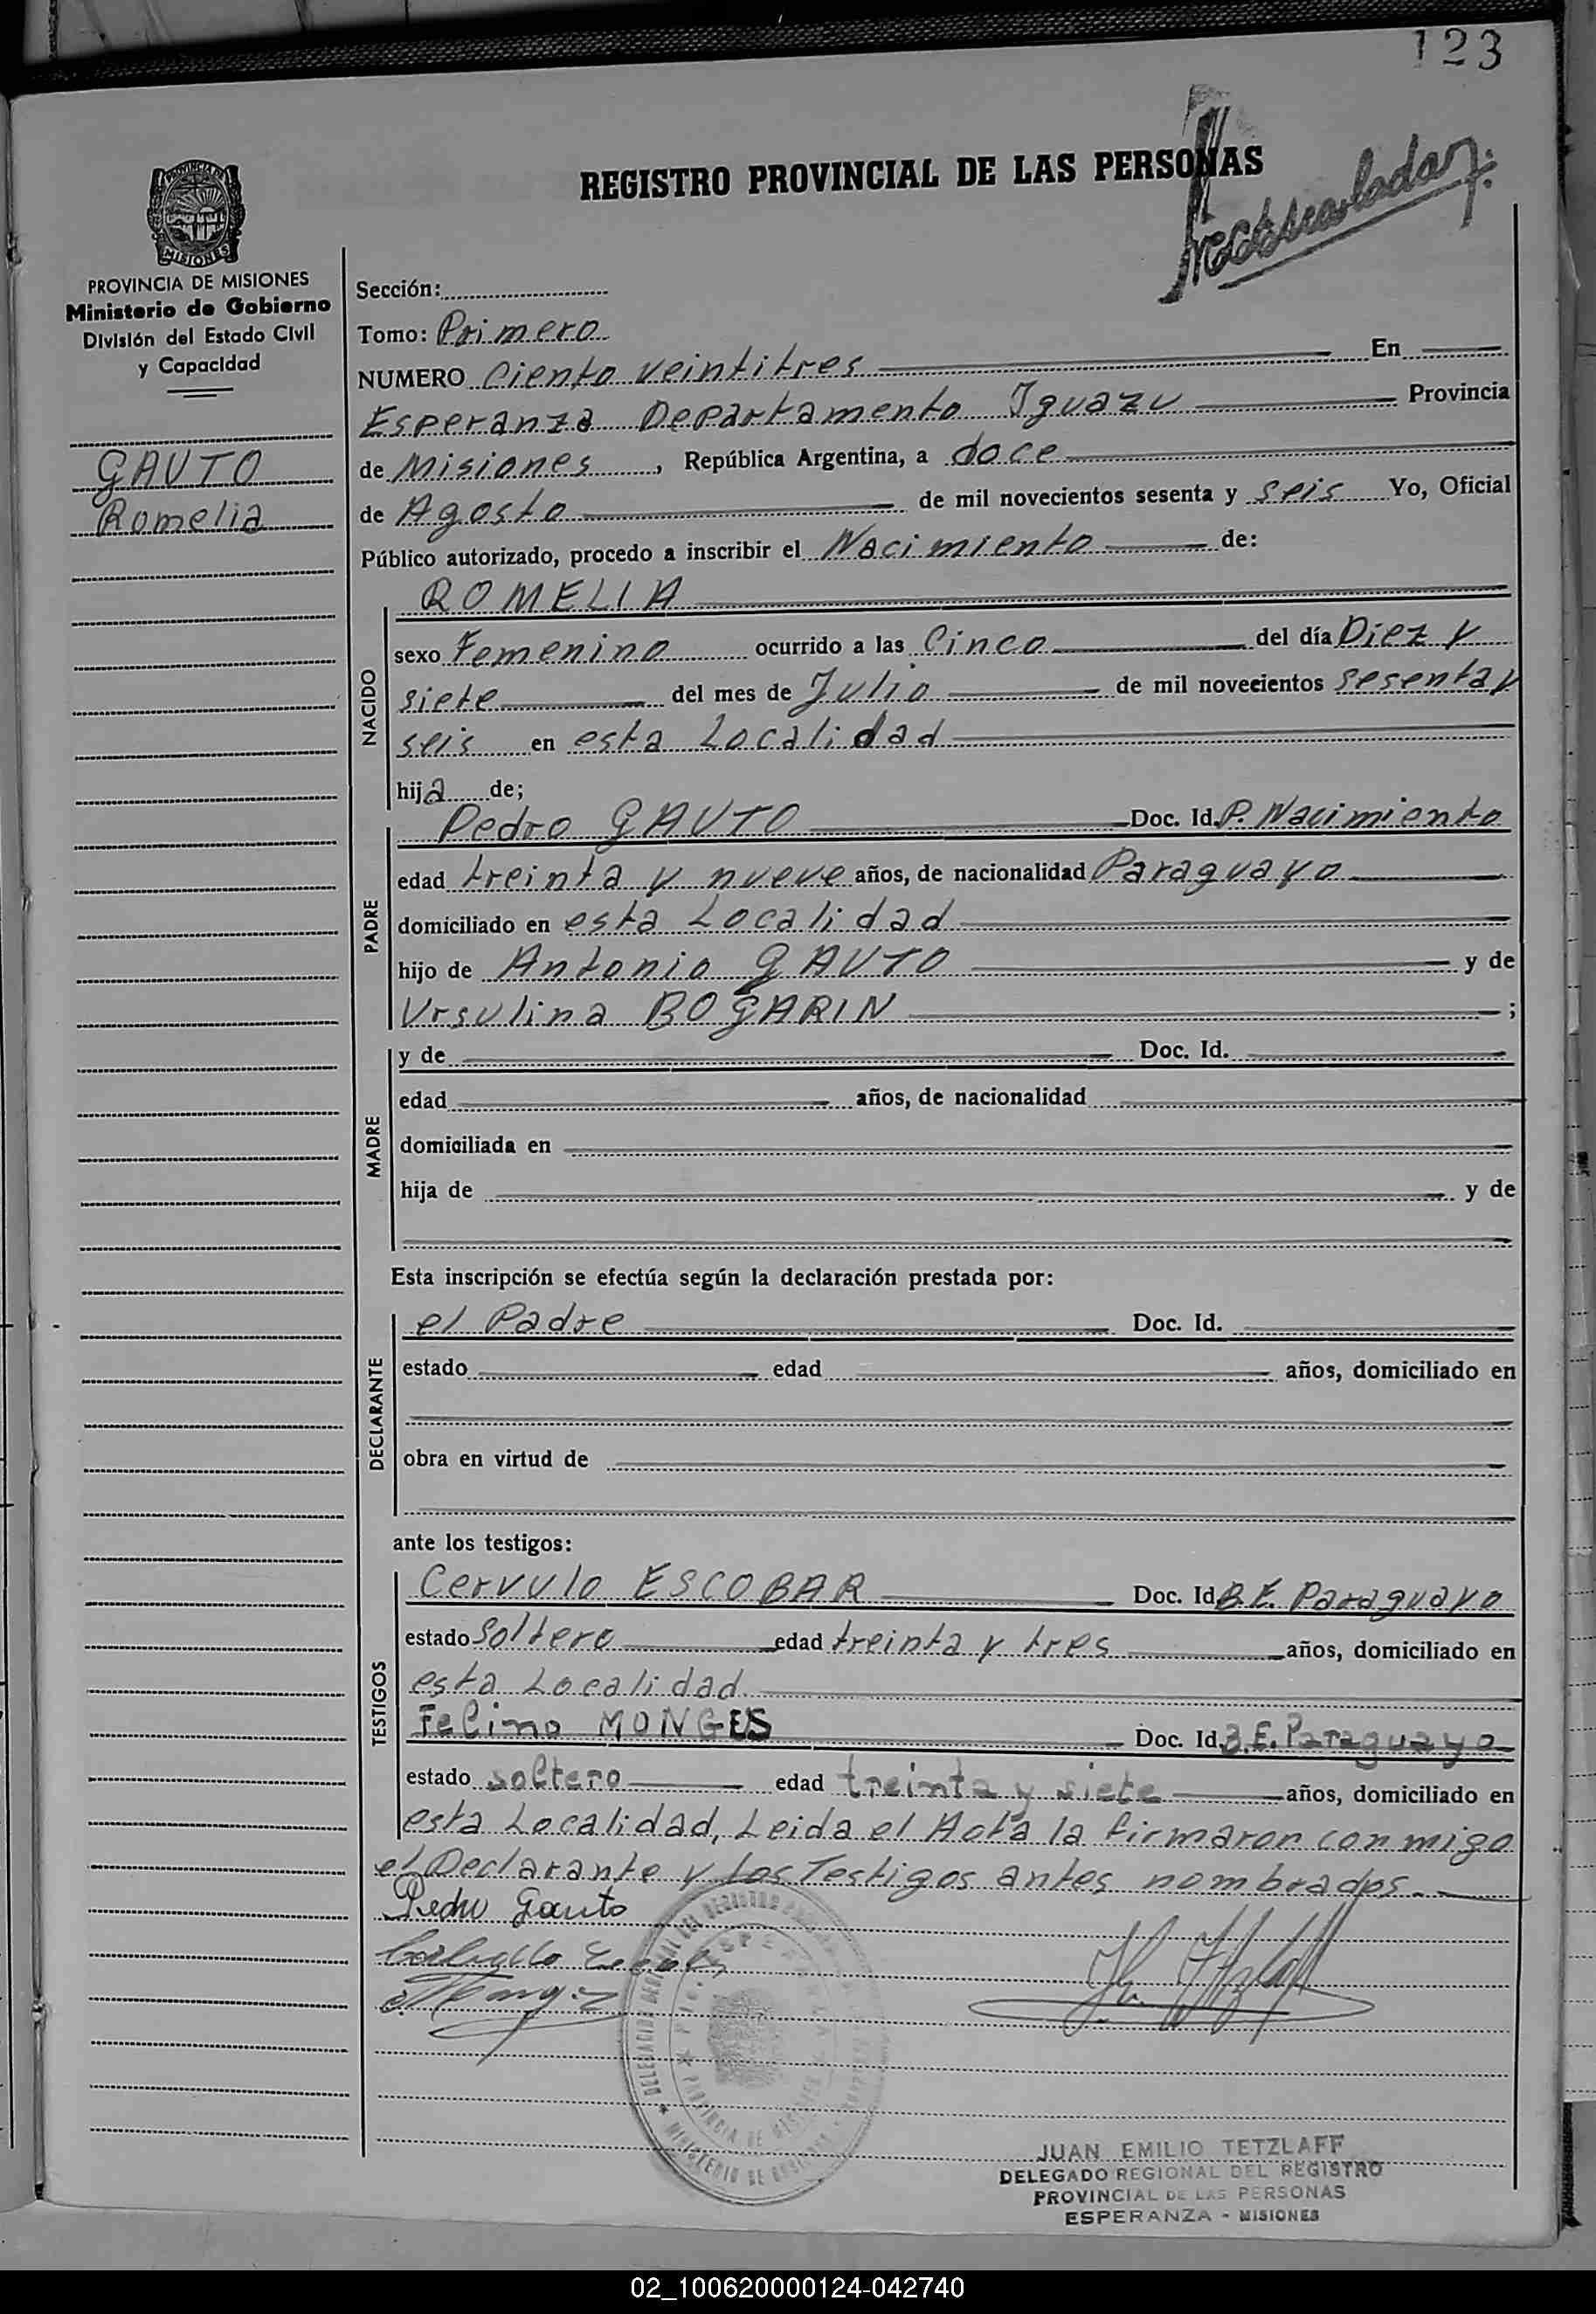 123
REGISTRO PROVINCIAL DE LAS PERSONAS
PROVINCIA DE MISIONES
Ministerio de Gobierno
División del Estado Civil
y Capacidad
GAUTO
Romelia
Sección:
Tomo: Primero
NUMERO Ciento veintitres En
Esperanza Departamento Iguazu Provincia
de Misiones, República Argentina, a doce
de Agosto de mil novecientos sesenta y seis Yo, Oficial
Público autorizado, procedo a inscribir el Nacimiento de:
NACIDO
ROMELIA
sexo Femenino ocurrido a las Cinco del día Diez y
siete del mes de Julio de mil novecientos sesenta y
seis en esta Localidad
hija de;
PADRE
Pedro GAUTO Doc. Id. P. Nacimiento
edad treinta y nueve años, de nacionalidad Paraguayo
domiciliado en esta Localidad
hijo de Antonio GAUTO y de
Ursulina BOGARIN ;
MADRE
y de Doc. Id.
edad años, de nacionalidad
domiciliada en
hija de y de
Esta inscripción se efectúa según la declaración prestada por:
DECLARANTE
el Padre Doc. Id.
estado edad años, domiciliado en
obra en virtud de
ante los testigos:
TESTIGOS
Cervulo ESCOBAR Doc. Id B.E. Paraguayo
estado Soltero edad treinta y tres años, domiciliado en
esta Localidad
Felino MONGES Doc. Id B.E. Paraguayo
estado soltero edad treinta y siete años, domiciliado en
esta Localidad, Leida el Acta la firmaron con migo
el Declarante y los Testigos antes nombrados.
Pedro Gauto
JUAN EMILIO TETZLAFF
DELEGADO REGIONAL DEL REGISTRO
PROVINCIAL DE LAS PERSONAS
ESPERANZA - MISIONES
02_100620000124-042740